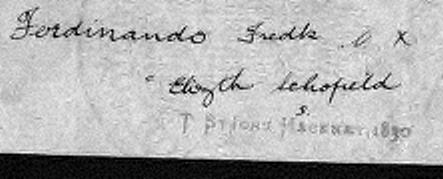 Ferdinando Fredk x
" Elizth Schofield
St Johns Hackney, 1890